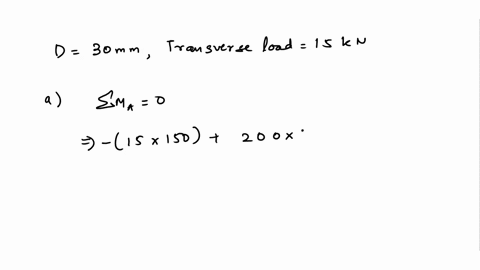 D = 30mm, Transverse load = 15 kN
a) ΣM_A = 0
⇒ -(15 x 150) + 200 x